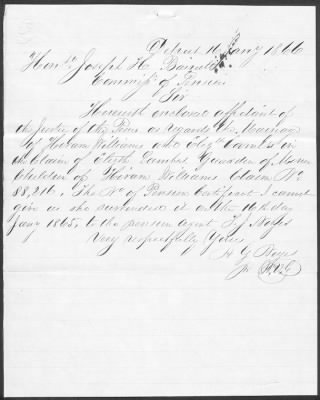 Detroit 16 Jany 1866
Honble Joseph H. Barrett
Commissr of Pensions
Sir
Herewith enclose affidavit of
the Justice of the Peace as regards the Marriage
of Hiram Williams
the Claim of Guardian of Minor
Children of Hiram Williams Claim No
88,216. The No of Pension Certificate I cannot
give as she surrendered it on the 16th day
Jany 1865, to the pension agent, T. J. Noyes
Very respectfully Yours
H G Noyes